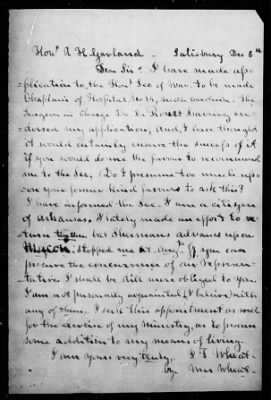 Hon. A H. Garland - Salisbury Dec 6th
Dear Sir. I have made ap-
plication to, the Hon. Sec of War. to be made
Chaplain of Hospital, No. 14, North Carolina. The
Surgeon in Charge Dr. De Rosset having en-
dorsed my application, and, I have thought
it would certainly insure the success of it
if you would do me the favour to recommend
me to the Sec; Do I presume too much up-
on your former kind favours to ask this?
I have informed the Sec. I am a citizen
of Arkansas. I lately made an effort to re-
turn but Shermans advance upon
Macon, stopped me at Aug. If you can
procure the concurrence of our represen-
tative I shall be still more obliged to you.
I am not personally acquainted, I believe, with
any of them. I seek this appointment as well
for the exercise of my Ministry, as to procure
some addition to my means of living.
I am yours very truly, J T Wheat-
by Mrs Wheat-